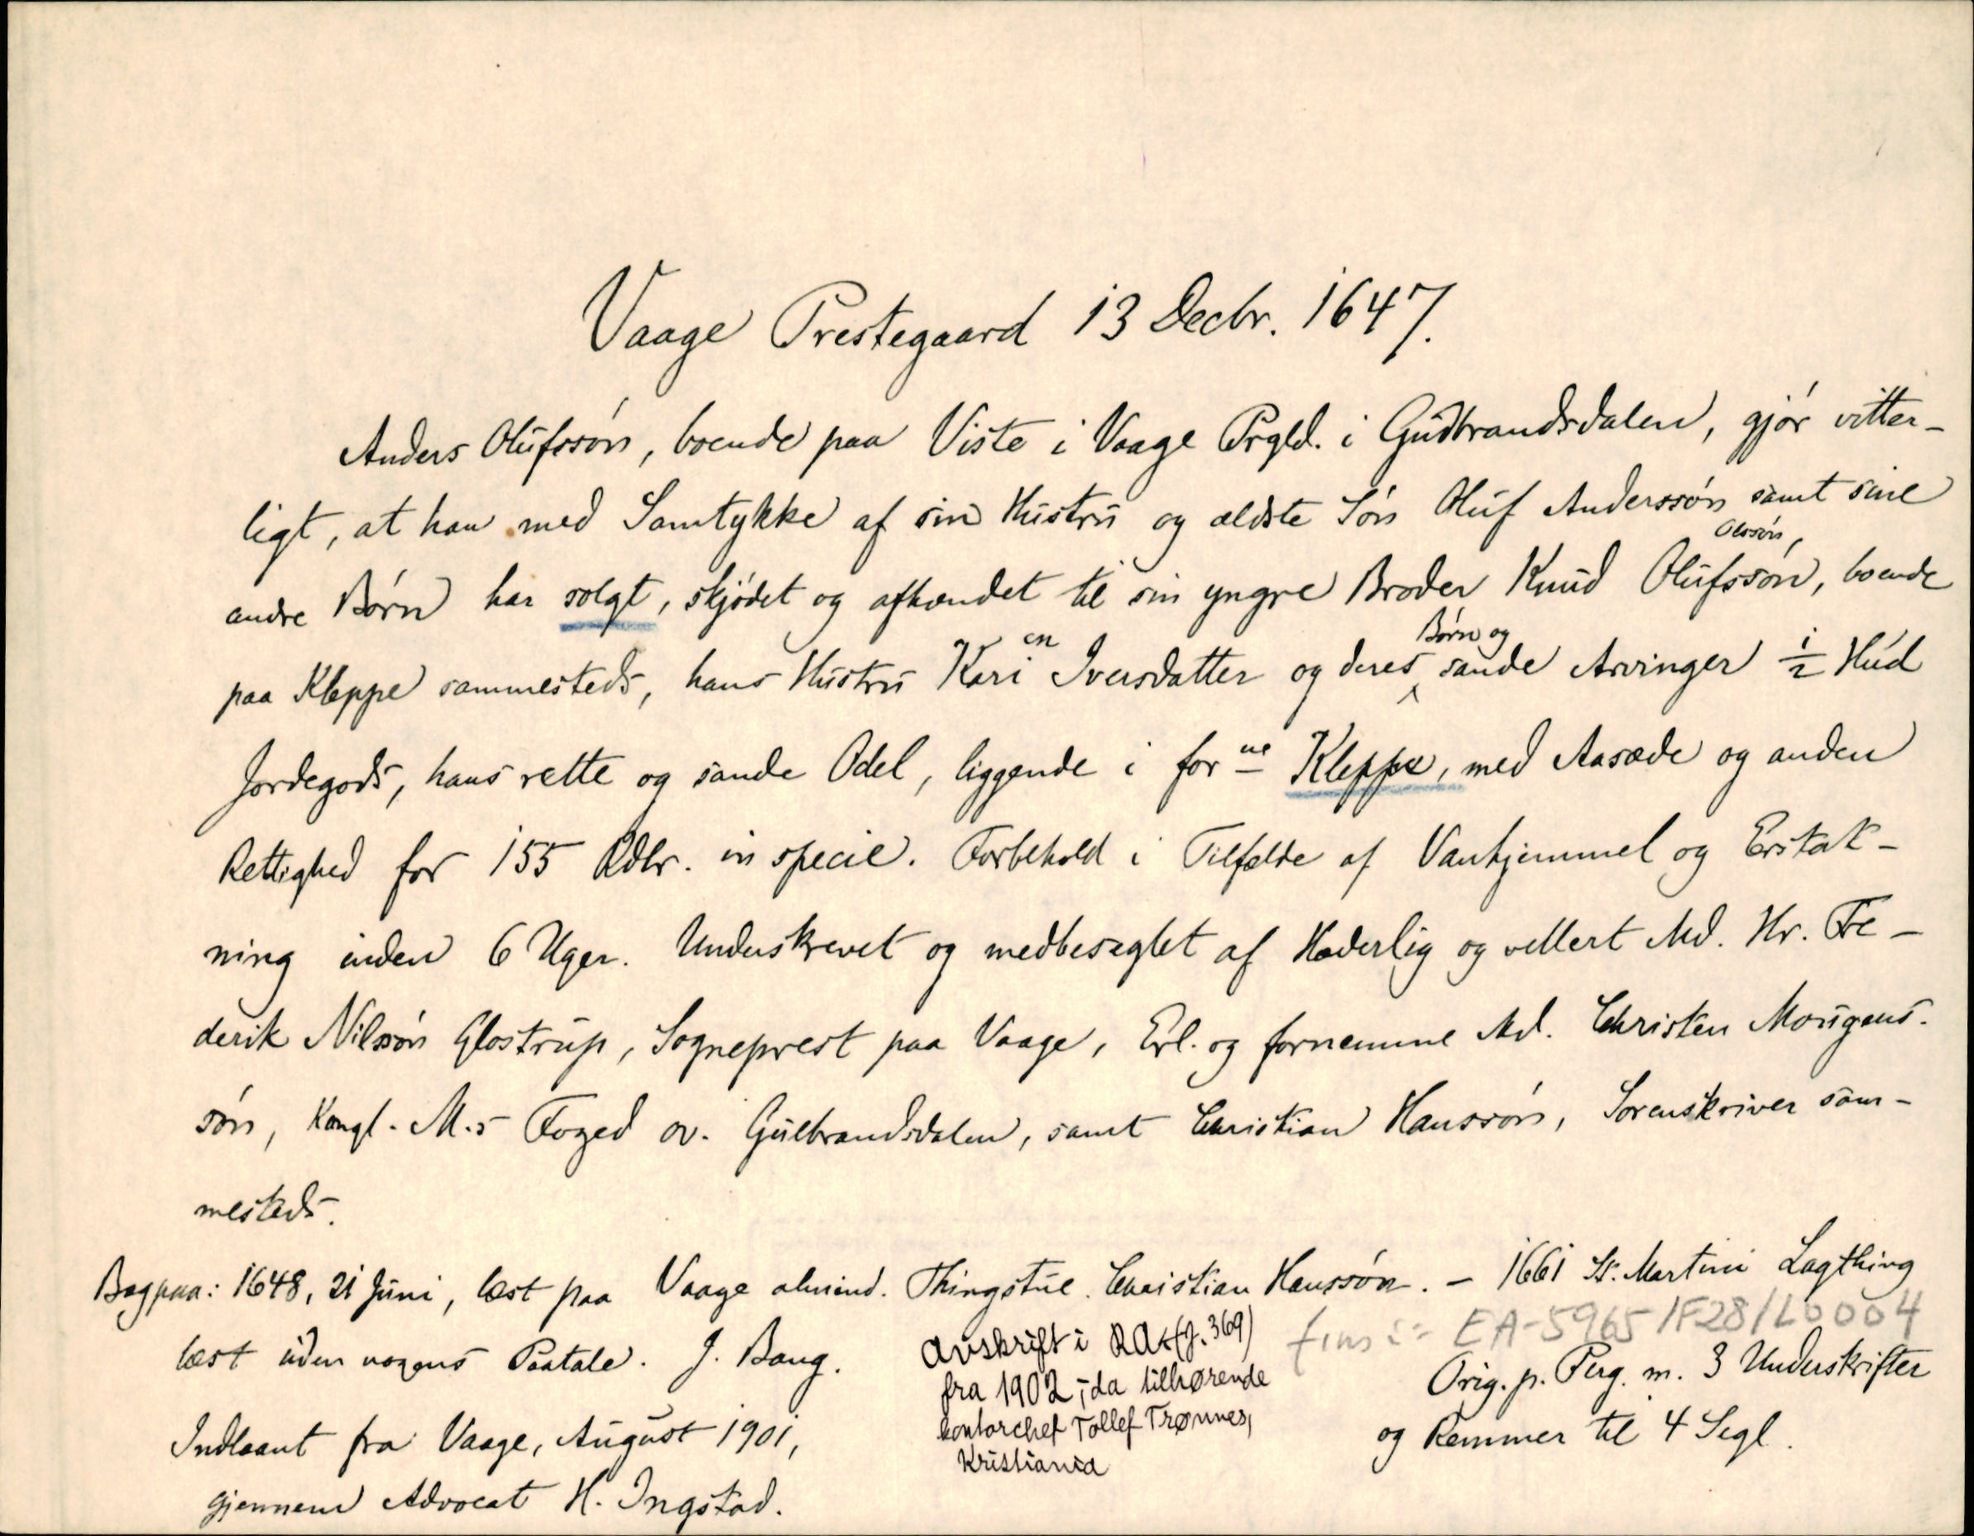 Vaage Prestegaard 13 Decbr. 1647.
Anders Olufssøn, boende paa Viste i Vaage Prgld. i Gudbrandsdalen, gjør vitter-
ligt, at han med Samtykke af sin Hustru og ældste Søn Oluf Anderssøn samt sine
andre Børn har solgt, skjødet og afhændet til sin yngre Broder Knud Olufssøn, boende
Olssøn,
paa Kleppe sammesteds, hans Hustru Kari Iversdatter og deres sande Arvinger 1/2 Hud
en
Børn og
Jordegods, hans rette og sande Odel, liggende i forne Kleppe, med Aasæde og anden
Rettighed for 155 Rdlr. in specie. Forbehold i Tilfælde af Vanhjemmel og Erstat-
ning inden 6 Uger. Underskrevet og medbeseglet af Hæderlig og vellert Md. Hr. Fre-
derik Nilssøn Glostrup, Sogneprest paa Vaage, Erl. og fornemme Md. Christen Mougens-
søn, Kongl. M.s Foged ov. Gulbrandsdalen, samt Christian Hanssøn, Sorenskriver sam-
mesteds.
Bagpaa: 1648, 21 Juni, læst paa Vaage almind. Thingstue. Christian Hanssøn. - 1661 St. Martini Lagthing
læst uden nogens Paatale. J. Bang.
Indlaant fra Vaage, August 1901,
gjennem Advocat H. Ingstad.
Avskrift i RA (J. 369)
fra 1902, da tilhørende
kontorchef Tollef Trønnes,
Kristiania
fins i: EA-5965/F28/L0004
Orig. p. Perg. m. 3 Underskrifter
og Remmer til 4 Segl.